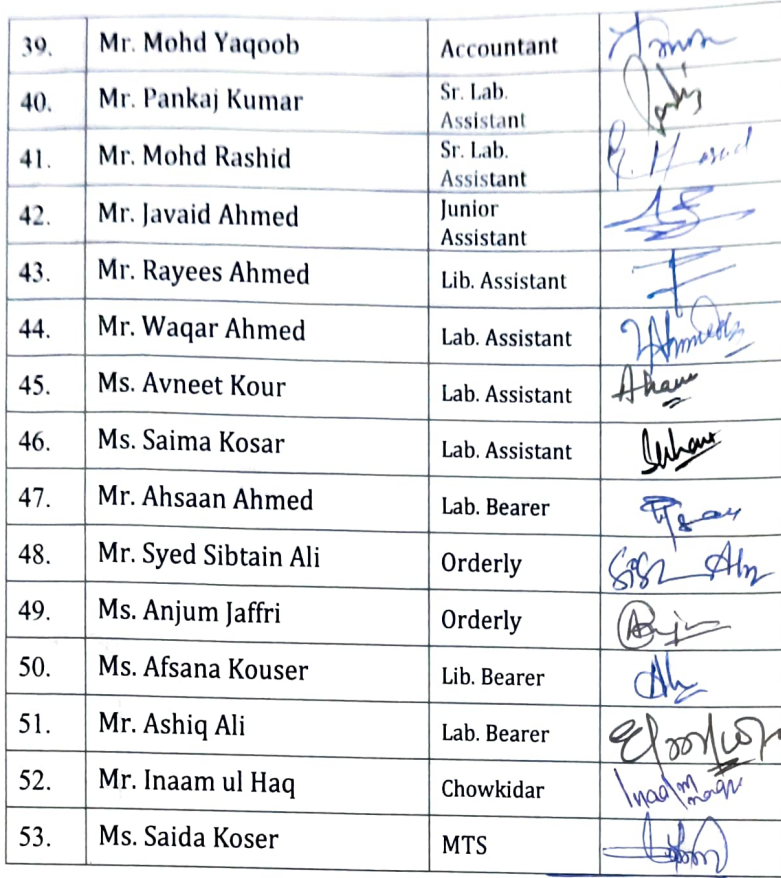 39. Mr. Mohd Yaqoob Accountant
40. Mr. Pankaj Kumar Sr. Lab.
Assistant
41. Mr. Mohd Rashid Sr. Lab.
Assistant
42. Mr. Javaid Ahmed Junior
Assistant
43. Mr. Rayees Ahmed Lib. Assistant
44. Mr. Waqar Ahmed Lab. Assistant
45. Ms. Avneet Kour Lab. Assistant
46. Ms. Saima Kosar Lab. Assistant
47. Mr. Ahsaan Ahmed Lab. Bearer
48. Mr. Syed Sibtain Ali Orderly
49. Ms. Anjum Jaffri Orderly
50. Ms. Afsana Kouser Lib. Bearer
51. Mr. Ashiq Ali Lab. Bearer
52. Mr. Inaam ul Haq Chowkidar
53. Ms. Saida Koser MTS